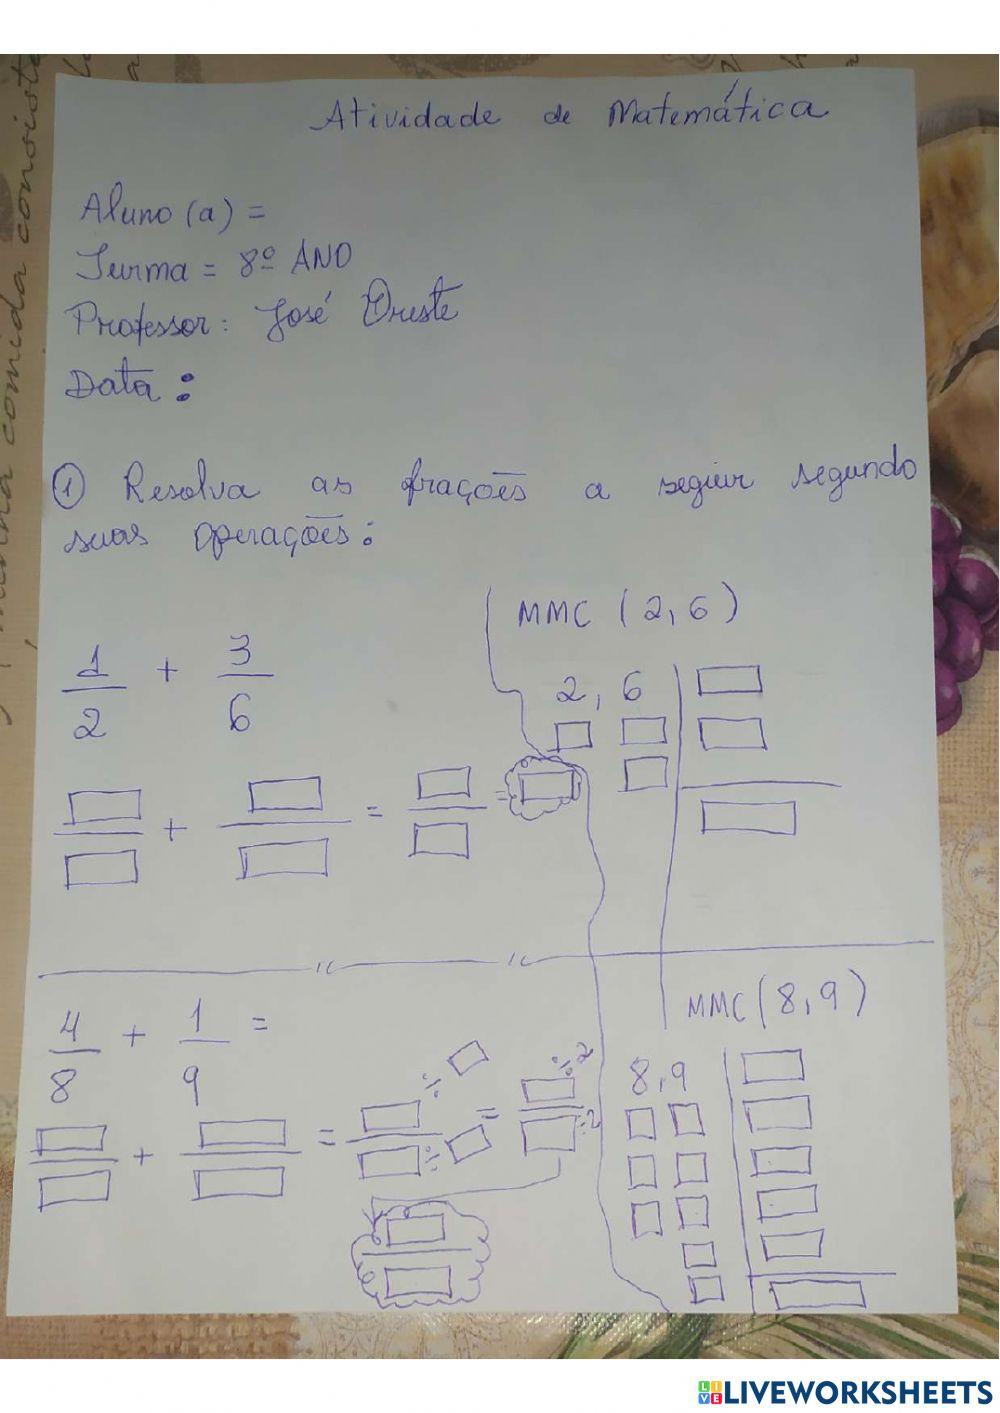 Atividade de Matemática
Aluno (a) =
Turma = 8º ANO
Professor: José Oreste
Data:
① Resolva as frações a seguir segundo
suas operações:
MMC (2,6)
1/2 + 3/6
2, 6
+ = =
MMC (8,9)
4/8 + 1/9 =
8,9
+ = ÷ ÷ = ÷2 ÷2
LIVEWORKSHEETS